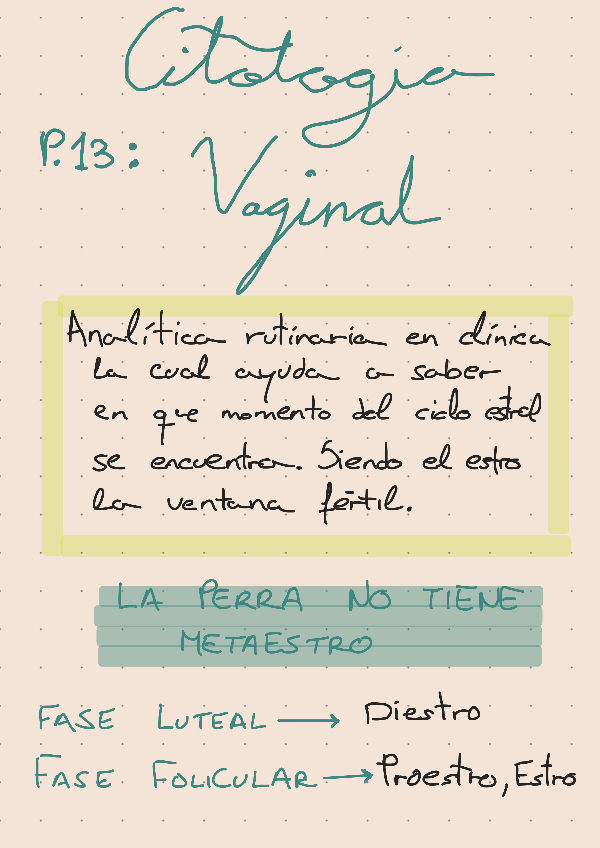 Citologia
P.13: Vaginal
Analítica rutinaria en clínica
la cual ayuda a saber
en que momento del ciclo estral
se encuentra. Siendo el estro
la ventana fértil.
LA PERRA NO TIENE
METAESTRO
FASE LUTEAL → Diestro
FASE FOLICULAR → Proestro, Estro